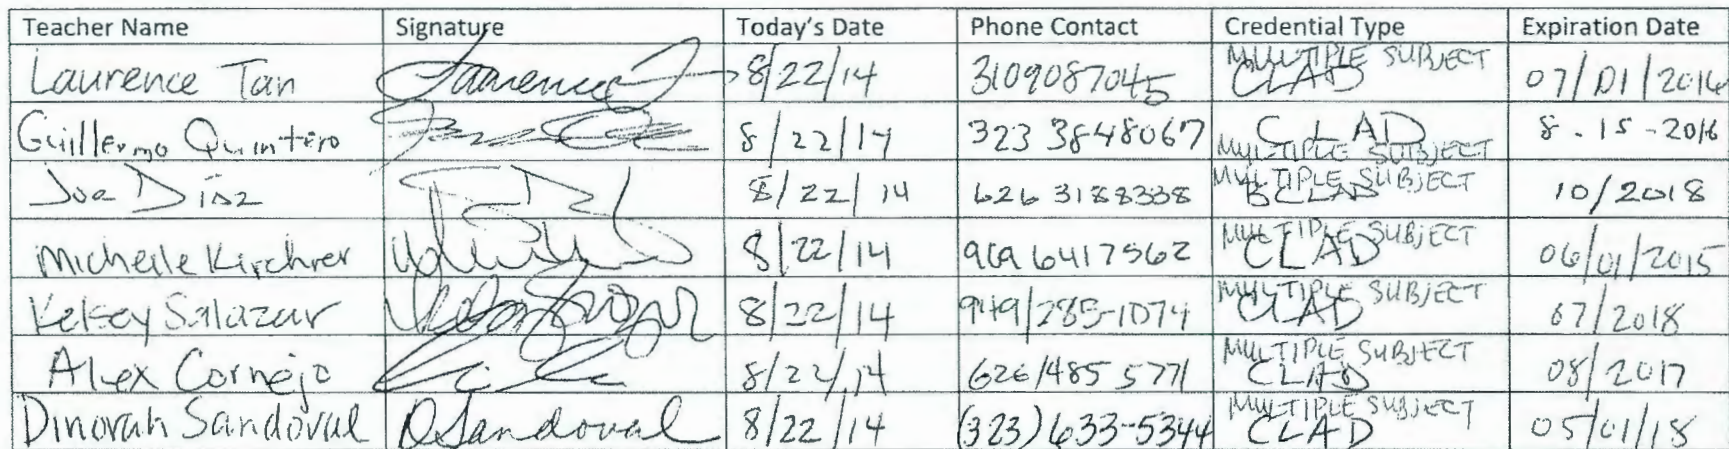 Teacher Name Signature Today's Date Phone Contact Credential Type Expiration Date
Laurence Tan 8/22/14 3109087045 MULTIPLE SUBJECT CLAD 07/01/2016
Guillermo Quintero 8/22/14 323 3848067 CLAD MULTIPLE SUBJECT 8-15-2016
Joe Díaz 8/22/14 626 3188338 MULTIPLE SUBJECT BCLAD 10/2018
Michelle Kirchner 8/22/14 909 6417562 MULTIPLE SUBJECT CLAD 06/01/2015
Kelsey Salazar 8/22/14 949/285-1074 MULTIPLE SUBJECT CLAD 07/2018
Alex Cornejo 8/22/14 626/485 5771 MULTIPLE SUBJECT CLAD 08/2017
Dinorah Sandoval DSandoval 8/22/14 (323) 633-5344 MULTIPLE SUBJECT CLAD 05/01/18